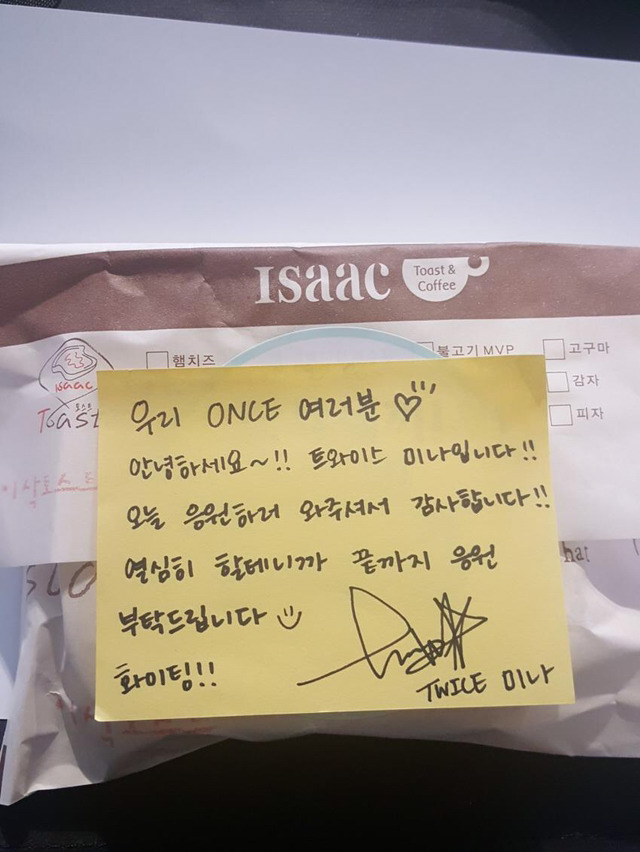 ISaac
Toast &
Coffee
햄치즈
불고기 MVP
고구마
감자
피자
ISaac
토스트
Toast
이삭토스트
우리 ONCE 여러분
안녕하세요~!! 트와이스 미나입니다!!
오늘 응원하러 와주셔서 감사합니다!!
열심히 할테니까 끝까지 응원
부탁드립니다
화이팅!!
TWICE 미나